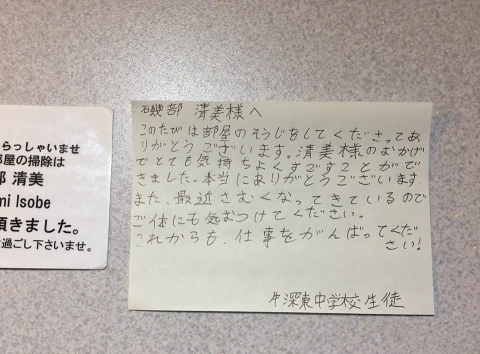 らっしゃいませ
部屋の掃除は
部 清美
mi Isobe
頂きました。
過ごし下さいませ。
磯部 清美様へ
このたびは部屋のそうじをしてくださってあ
りがとうございます。清美様のおかげ
でとても気持ちよくすごすことがで
きました。本当にありがとうございます。
また、最近さむくなってきているので
ご体にも気をつけてください。
これからも、仕事をがんばってくだ
さい!
牛深東中学校生徒